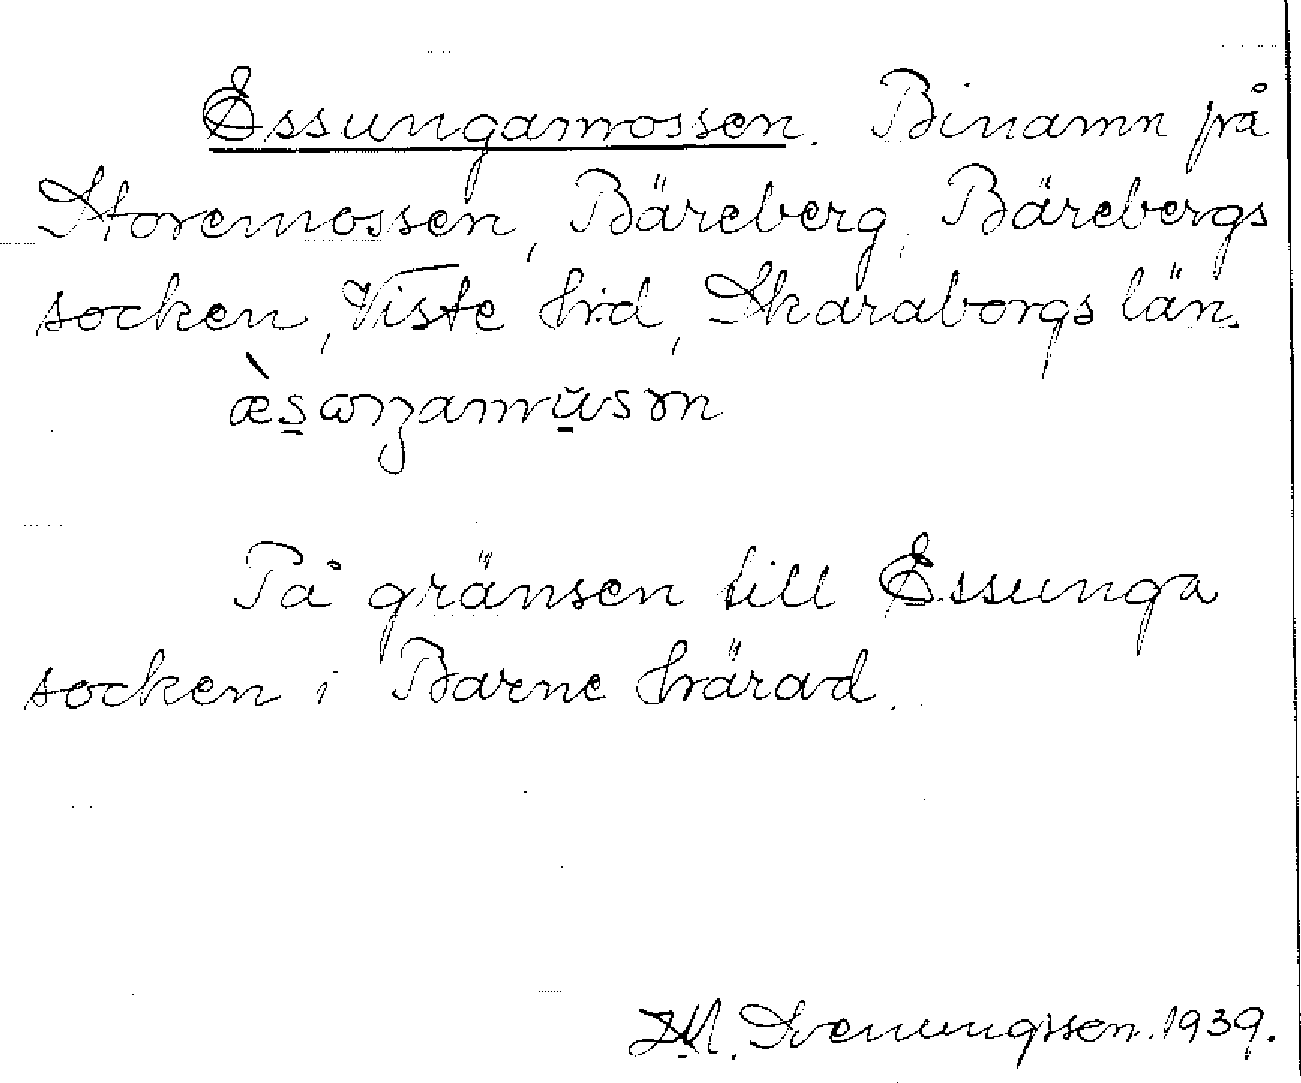 Essungamossen. Binamn på
Storemossen, Bäreberg, Bärebergs
socken, Viste hrd, Skaraborgs län.
På gränsen till Essunga
socken i Barne härad.
M. Svenungsson. 1939.